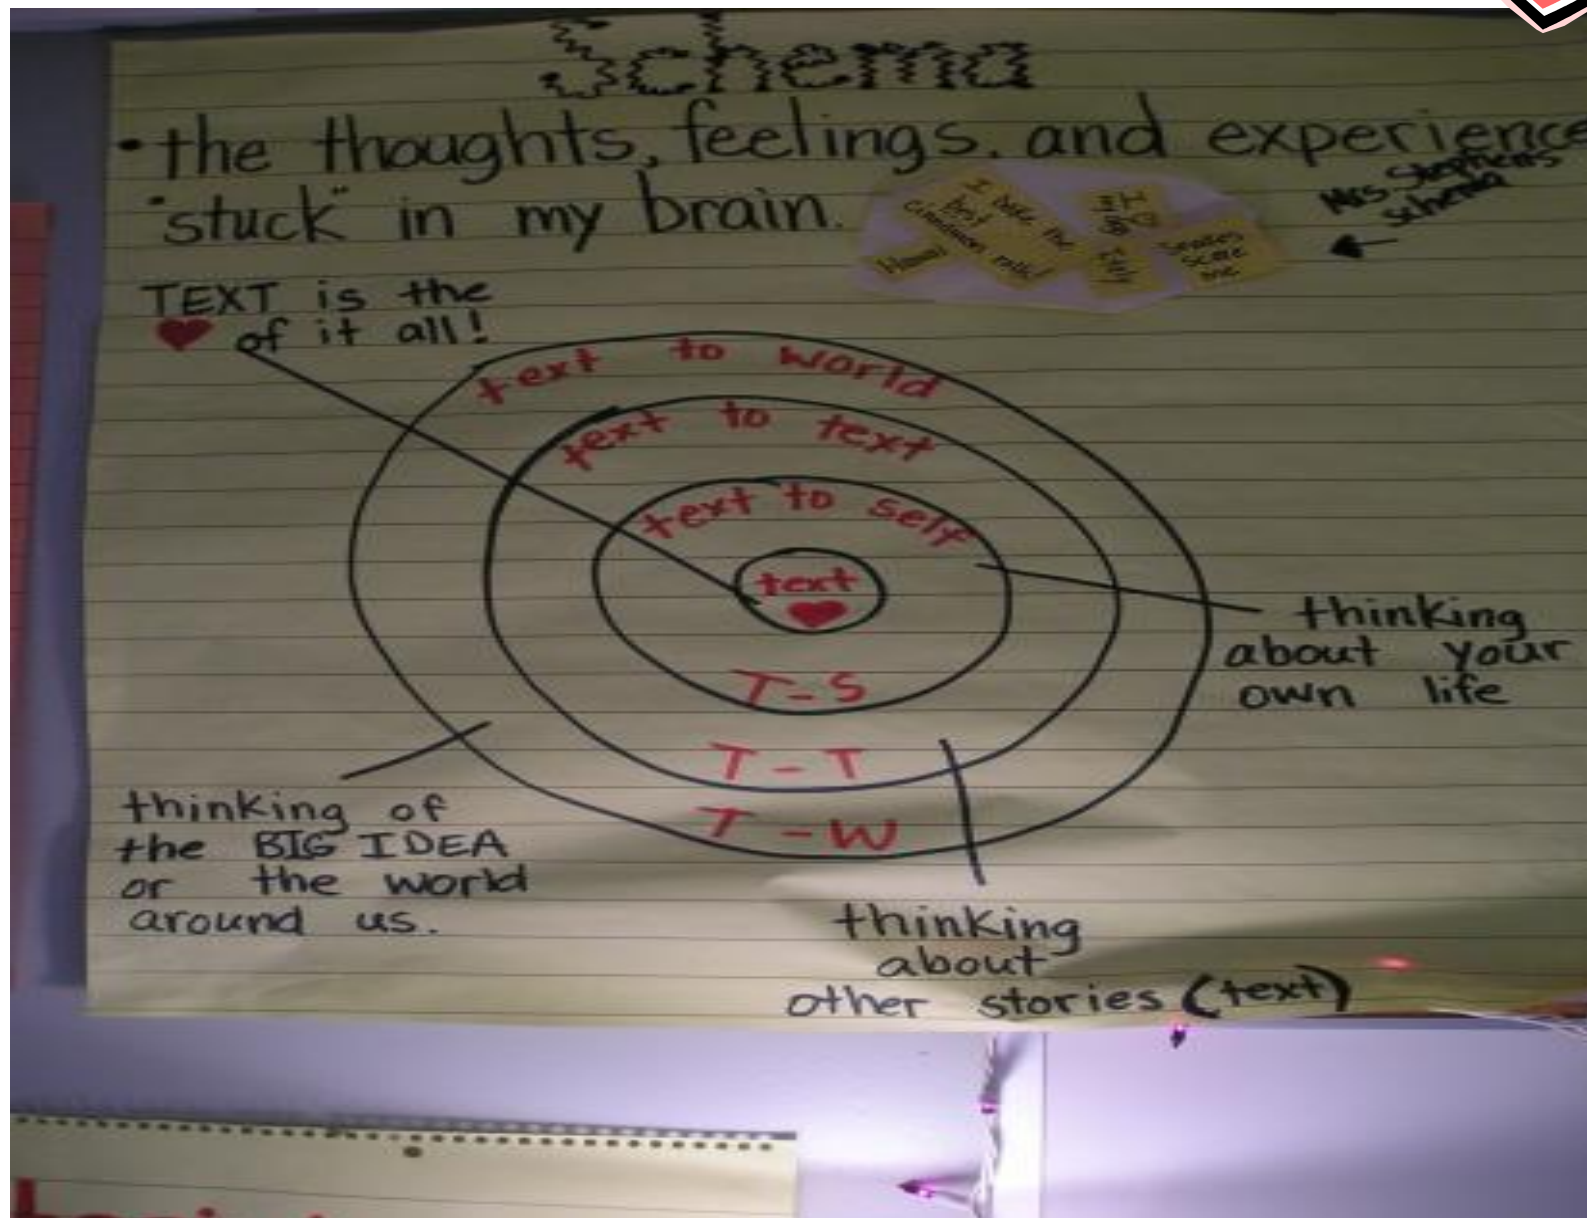 Schema
• the thoughts, feelings, and experience
"stuck" in my brain.
Mrs. Stephens
schema
I bake the
best
cinnamon rolls!
Snakes
scare
me
TEXT is the
♥ of it all!
text to world
text to text
text to self
text
♥
T-S
T-T
T-W
thinking
about your
own life
thinking of
the BIG IDEA
or the world
around us.
thinking
about
other stories (text)